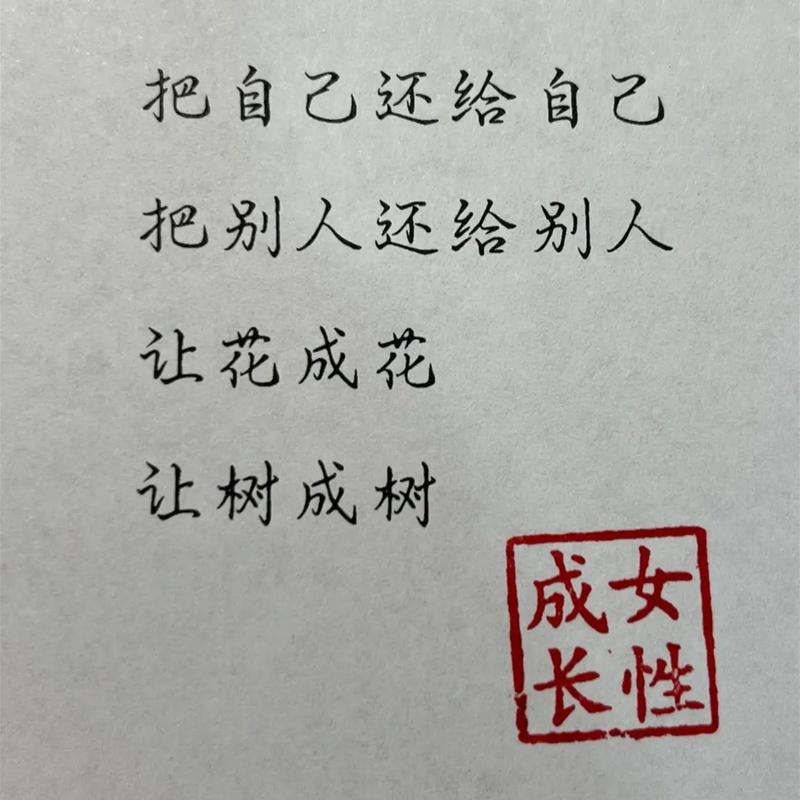 把自己还给自己
把别人还给别人
让花成花
让树成树
女性
成长